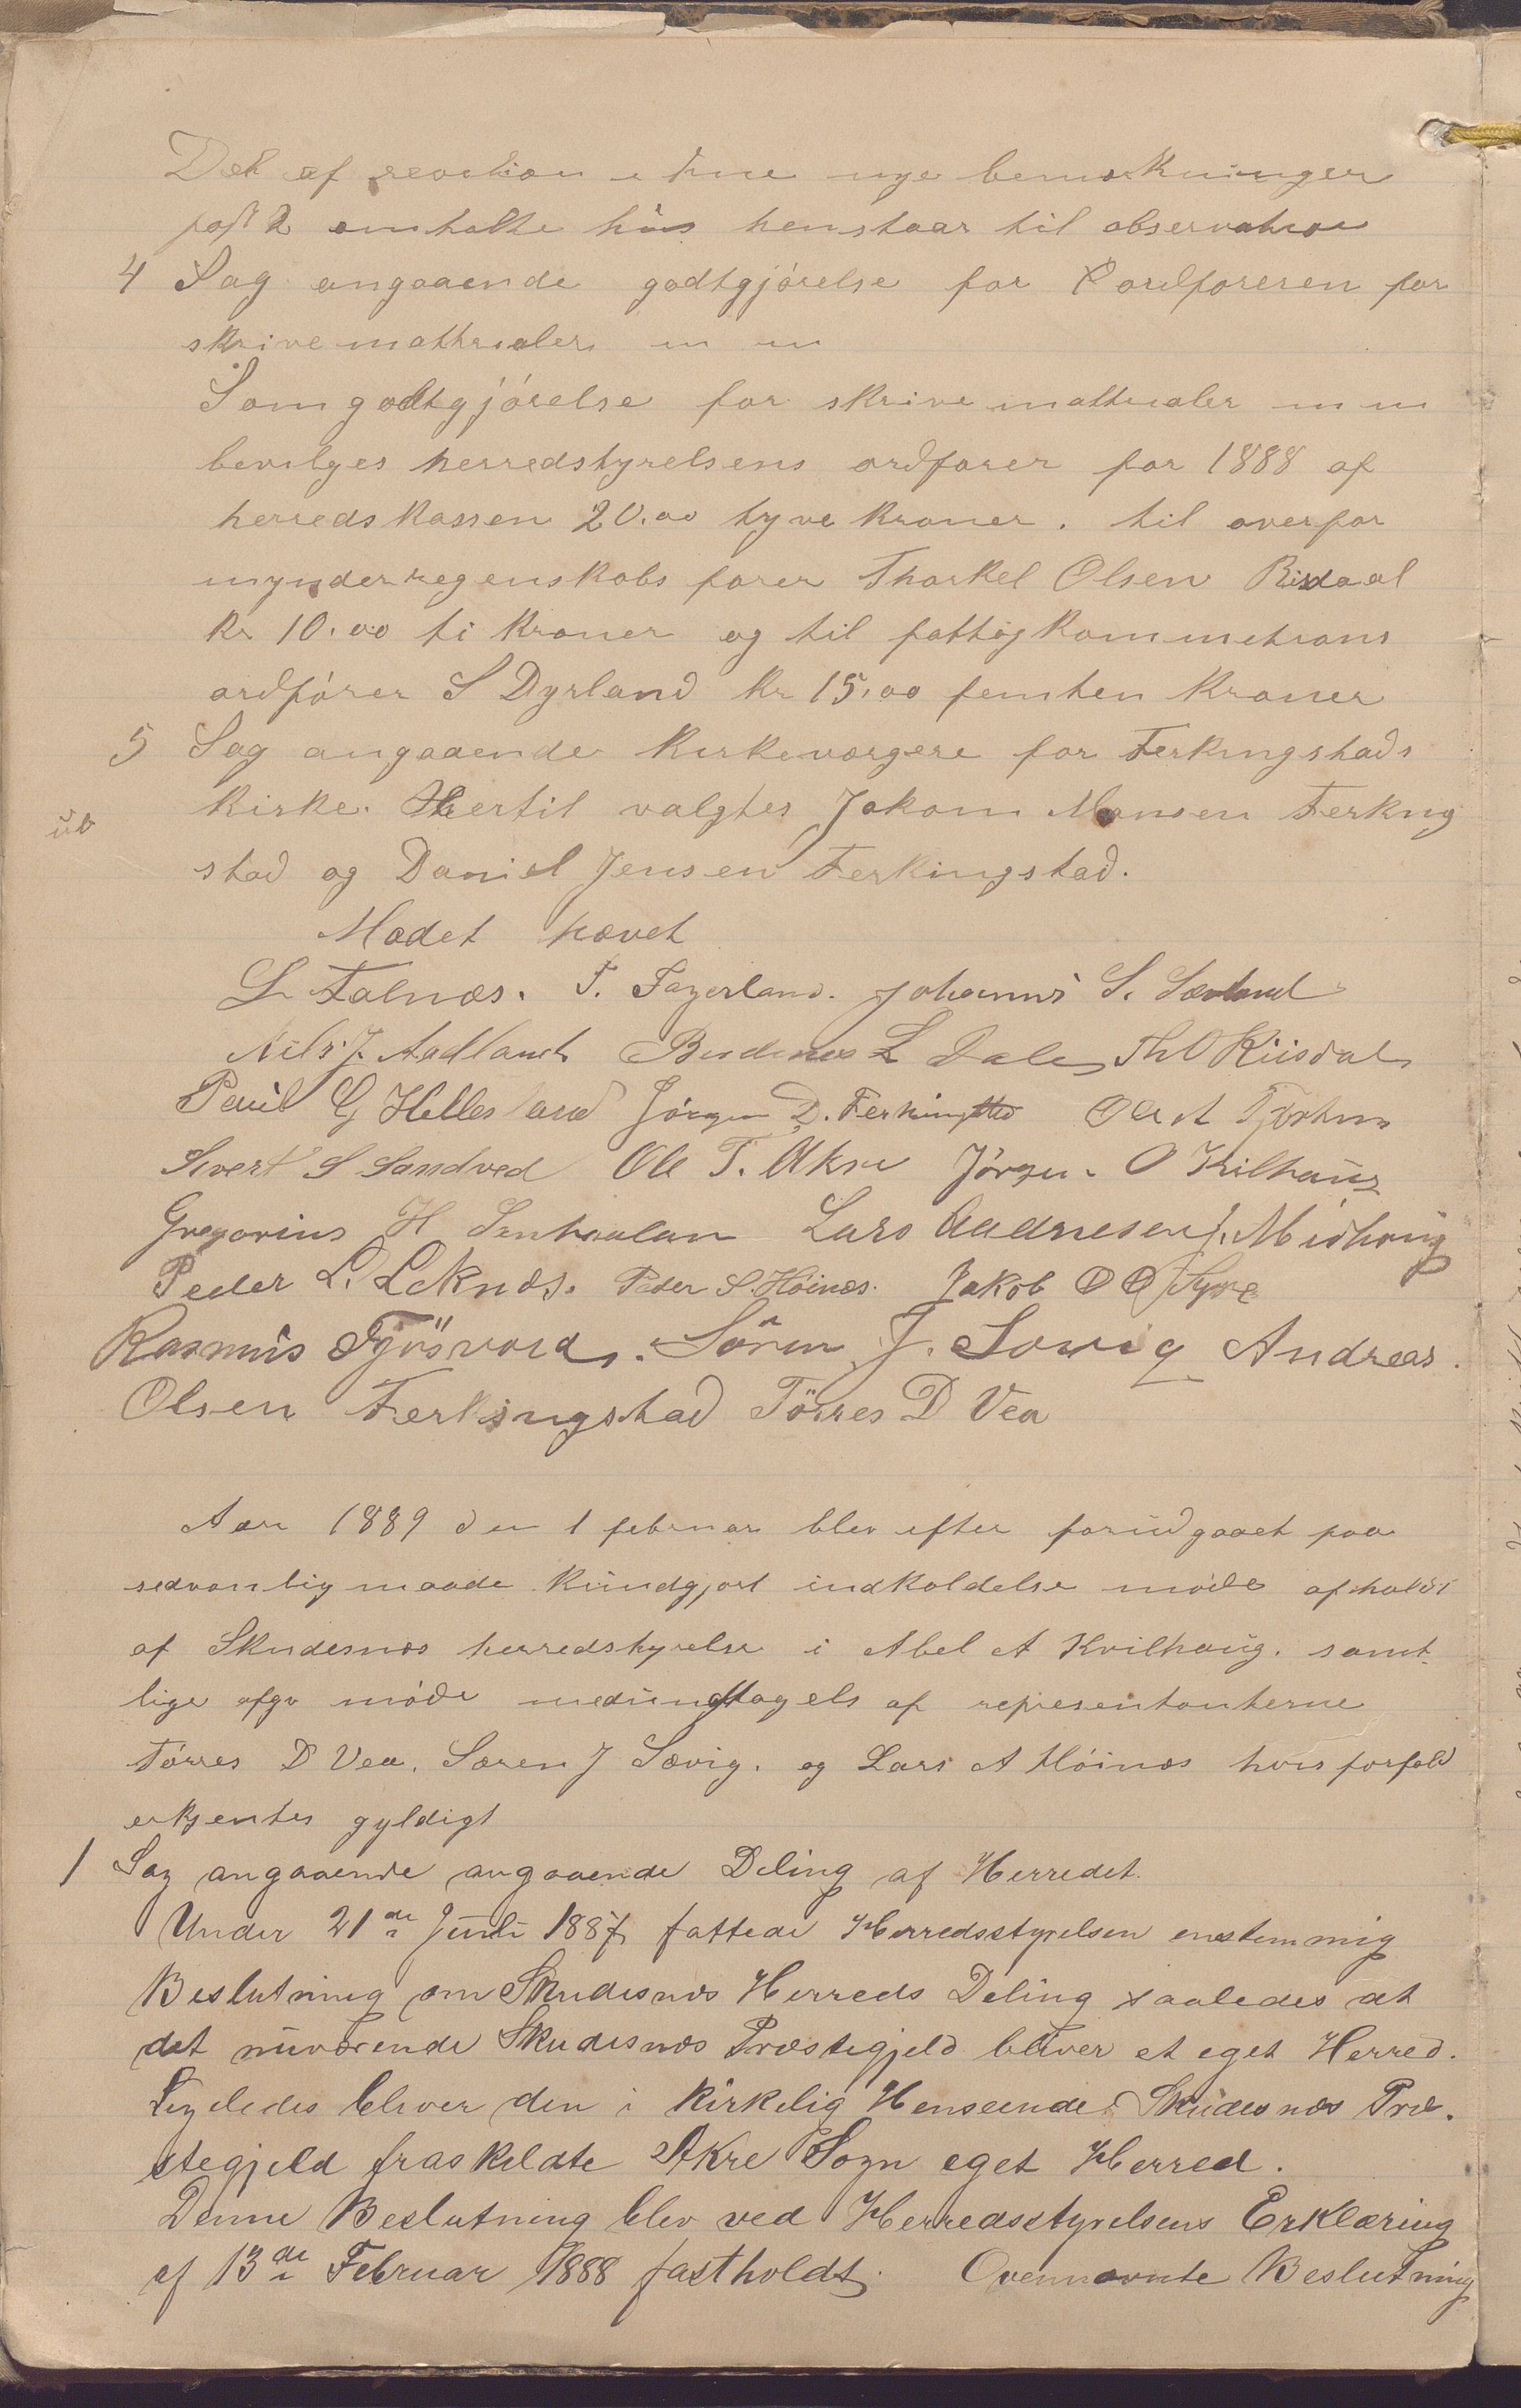 Det af revision i dine nye bemerkninger
post 2 omhalte hus henstaar til observation
4 Sag angaaende godtgjórelse for Ordforeren for
skrivematterialer m m
Som godtgjórelse for skrivematterialer m m
bevilges herredstyrelsens ordforer for 1888 af
herredskassen 20.00 tyve kroner. til overfor
mynderregenskobs forer Thorkel Olsen Risdaal
kr 10.00 ti kroner og til fattigkommetions
ordfórer S Dyrland kr 15.00 femten kroner
5 Sag angaaende kirkeværgere for Ferkingstads
ub
kirke. Hertil valgtes Jakom Monsen Ferking
stad og Daniel Jensen Ferkingstad.
Modet hævet
L Falnæs. T. Fagerland. Johannes S. Sævland
Nils J. Aadland L Dale Th O Riisdal
Paul G Hellesland Jórgen D. Ferkingstad Ole A
Sivert S Sandved Ole T. Akre Jórgen O Kvilhaug
Gregorius H Lars Aadnesen Midhaug
Peder L. Leknæs. Peder S. Höinæs. Jakob O O Syre
Rasmus Tjösvold. Sören J. Sævig Andreas.
Olsen Ferkingstad Törres D Vea
Aar 1889 den 1 februar blev efter forudgaaet paa
sedvanlig maade kundgjort indkaldelse móde afholdt
af Skudesnæs herredstyrelse i Abel A Kvilhaug. samt-
lige afgv móde medundtagels af representanterne
Tórres D Vea, Søren J Sævig. og Lars A Hóinæs hvis forfald
erkjentes gyldigt
1 Sag angaaende angaaende Deling af Herredet.
Under 21de Juni 1887 fattede Herredsstyrelsen enstemmig
Beslutning om Skudesnæs Herreds Deling saaledes at
det nuværende Skudesnæs Præstegjeld bliver et eget Herred.
Ligeledes bliver den i Kirkelig Henseende Skudesnæs Præ-
stegjeld fraskildte Akre Sogn eget Herred.
Denne Beslutning blev ved Herredsstyrelsens Erklæring
af 13de Februar 1888 fastholdt. Ovennævnte Beslutning